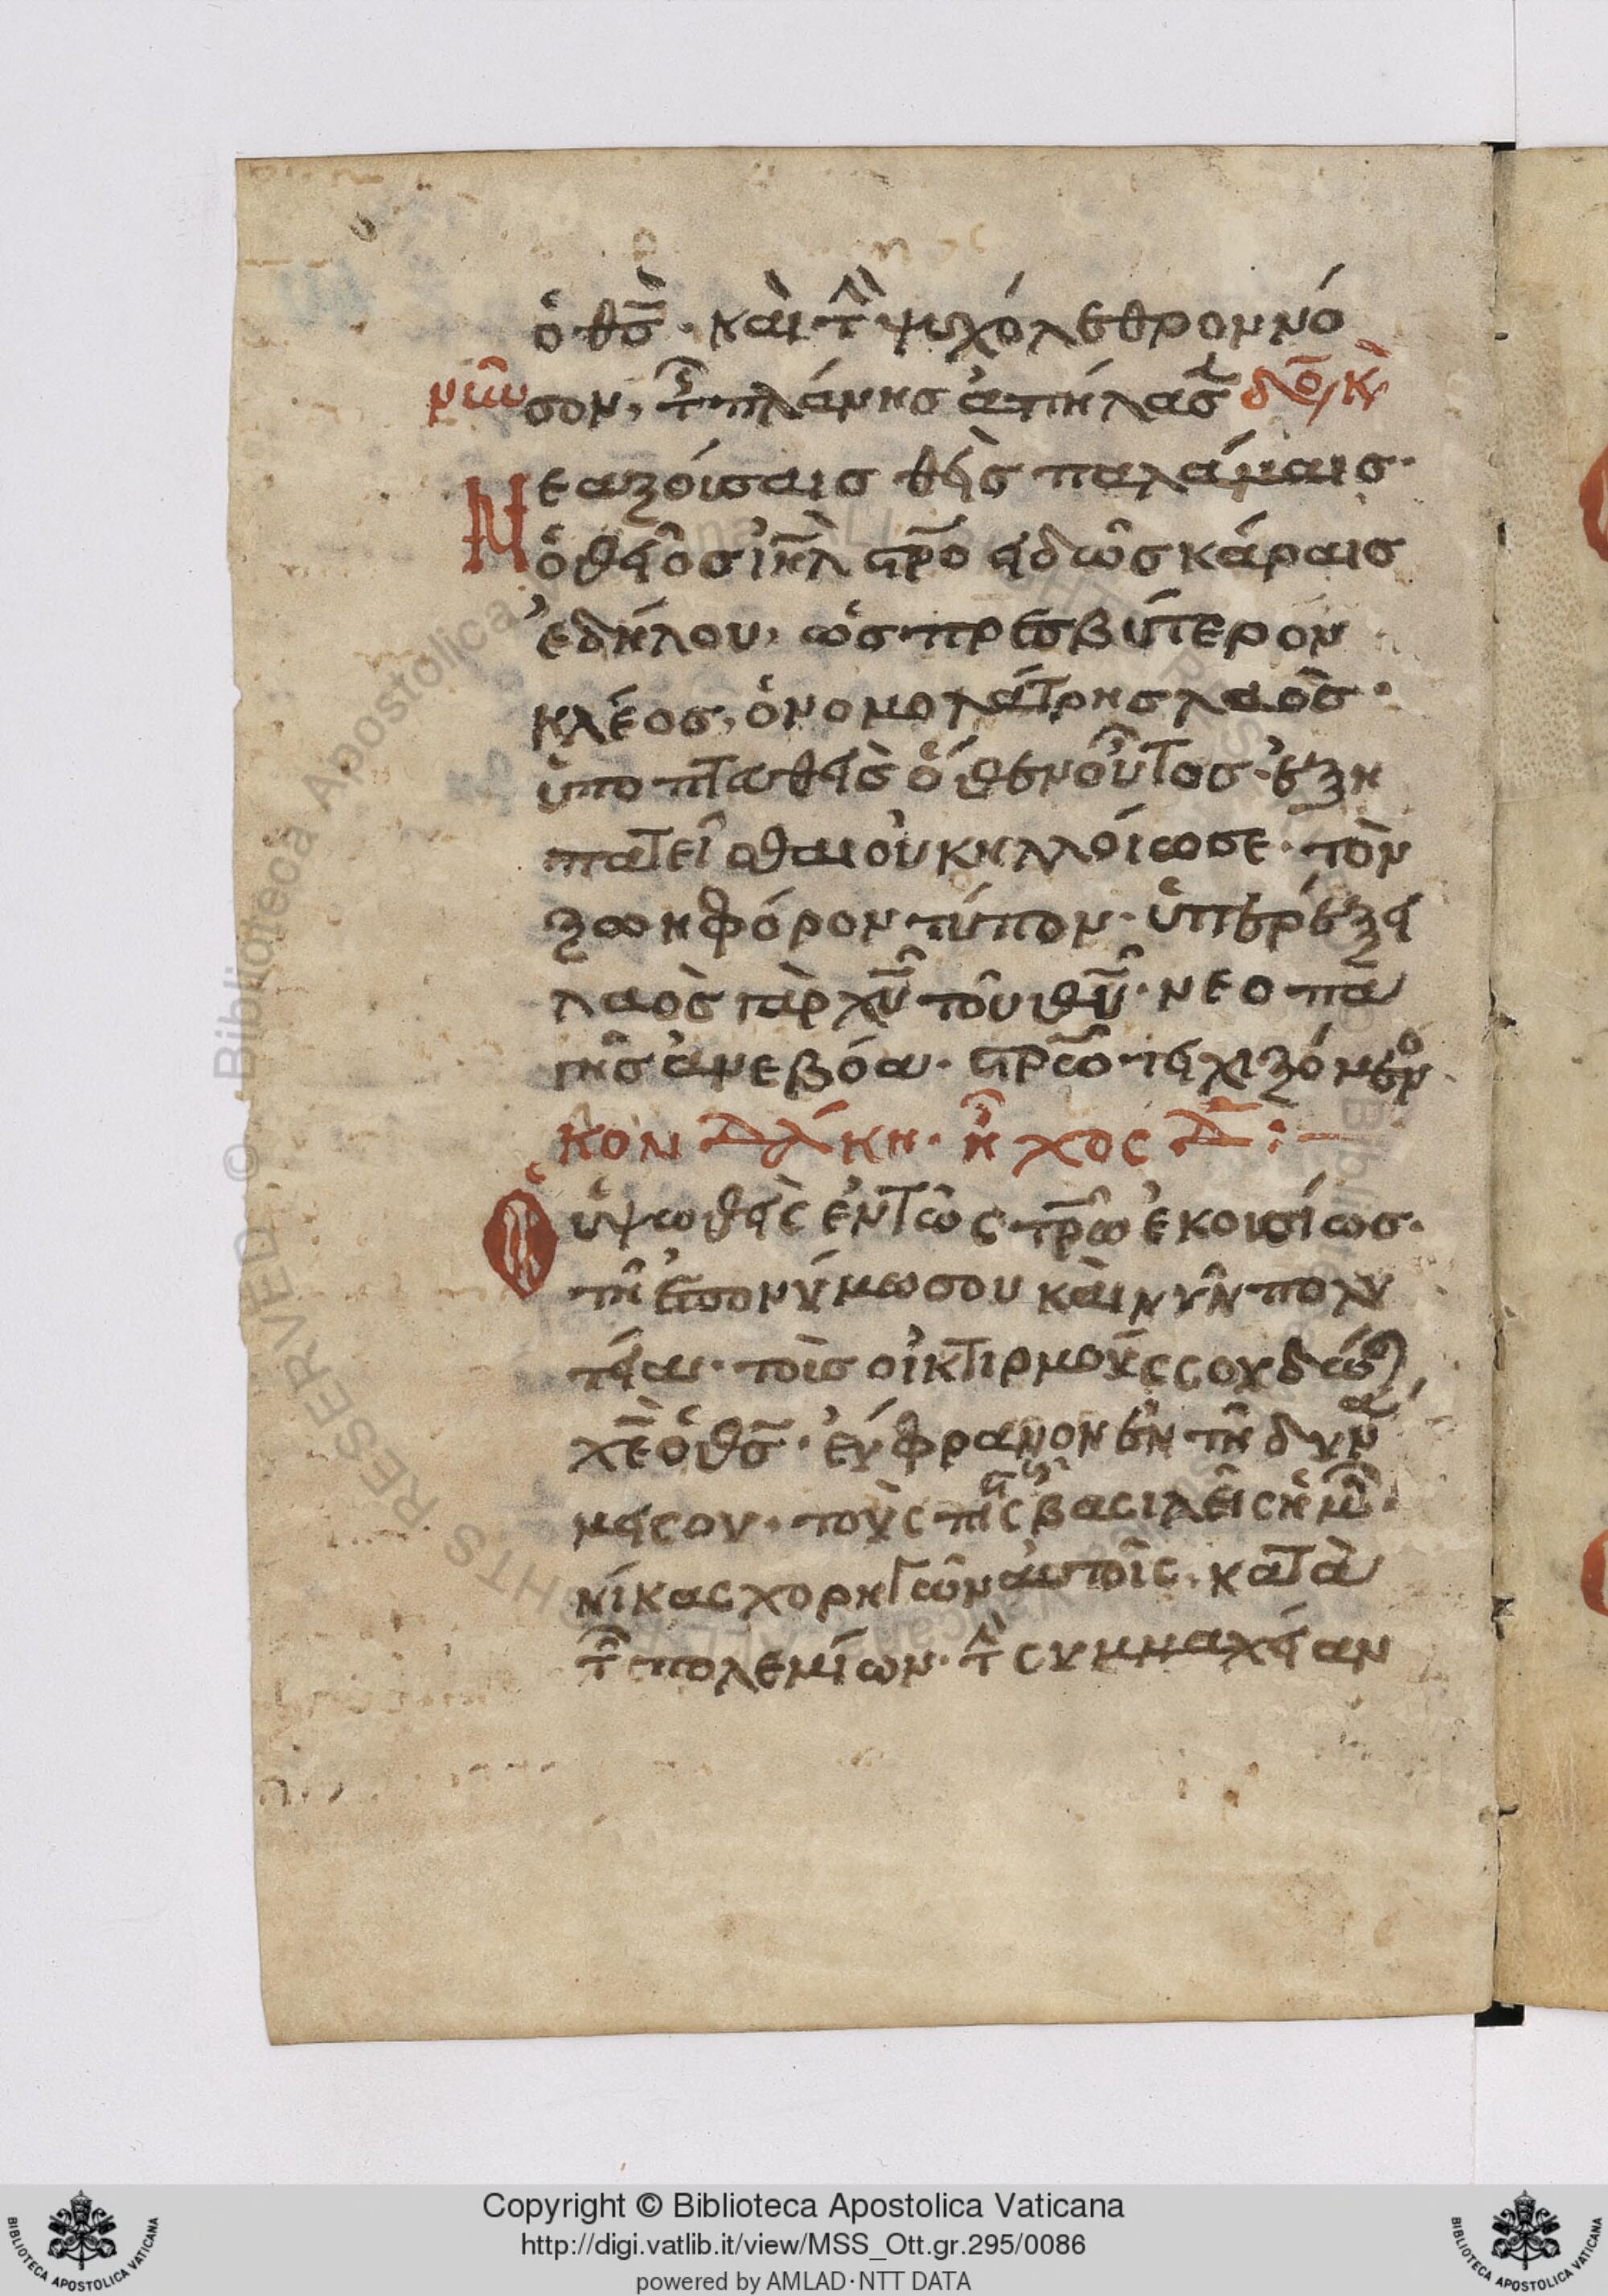 ὁ θς̅· καὶ τ̅ ψυχόλεθρον νό
νῶν
σον, τ̅ πλάνης ἀπήλας δό κ
Νεαζούσαις θεὶς παλάμαις·
ὁ θεῖος ἰη̅λ π̅ρο εἰδῶς κάραις
ἐδήλου, ὡς πρεσβύτερον
κλέος, ὁ νομολάτρης λαὸς·
ὑποπτωθεὶς ὅθεν οὗτος· ἐξη
πατεῖσθαι οὐκ ηλλόιωσε· τὸν
ζωηφόρον τύπον· ὑπερέξει
λαὸς παρ χυ̅ τοῦ θυ̅· νεοπα
γὴς ἀνεβόα· σρ̅ῶ τειχιζόμενον
κον δ λ κη· ἦχος δ:—
Ὁ ὑψωθεὶς ἐν τῶ ς̅τρω ἐκουσίως·
τῆ ἐπονύμω σου καὶ νῦν πολυ
τεία· τοὶς οἰκτιρμούς σου δώρ
χε̅ ὁ θς̅· ἐύφρανον ἐν τῆ δυνα
μει σου· τοὺς πις βασιλεῖς ἡμῶ·
νίκας χορηγῶν αυτοῖς· κατὰ
τ̅ πολεμίων· τ̅ συμμαχείαν
Copyright © Biblioteca Apostolica Vaticana
http://digi.vatlib.it/view/MSS_Ott.gr.295/0086
powered by AMLAD·NTT DATA
BIBLIOTECA APOSTOLICA VATICANA
BIBLIOTECA APOSTOLICA VATICANA